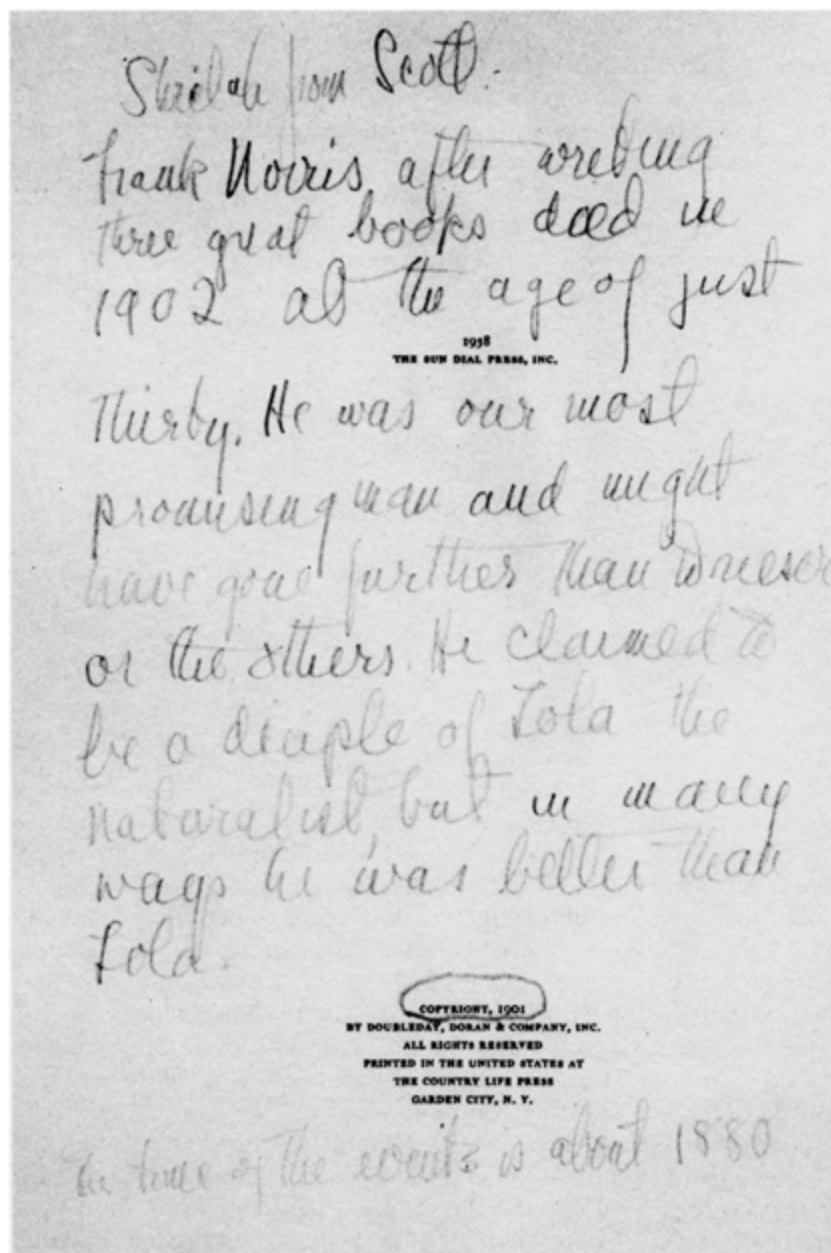 Sheilah from Scott.
Frank Norris after writing
three great books died in
1902 at the age of just
1938
THE SUN DIAL PRESS, INC.
Thirty. He was our most
promising man and might
have gone further than Drieser
or the others. He claimed to
be a diciple of Zola the
naturalist, but in many
ways he was better than
Zola.
COPYRIGHT, 1901
BY DOUBLEDAY, DORAN & COMPANY, INC.
ALL RIGHTS RESERVED
PRINTED IN THE UNITED STATES AT
THE COUNTRY LIFE PRESS
GARDEN CITY, N. Y.
The time of the events is about 1880